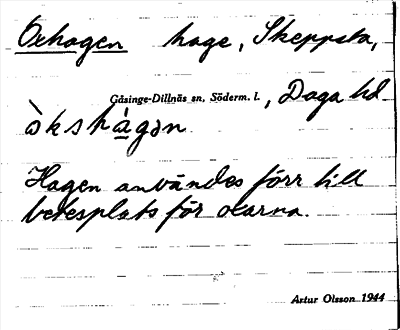 Oxhagen hage, Skeppsta,
Gåsinge-Dillnäs sn, Söderm. l., Daga hd
òkshàgan
Hagen användes förr till
betesplats för oxarna.
Artur Olsson 1944